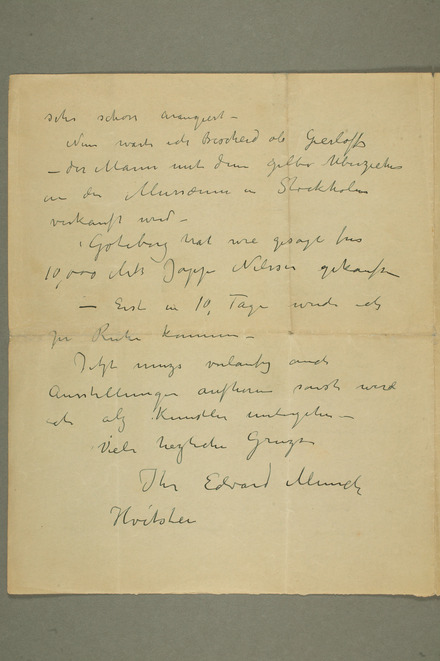 sehr schön arangiert –
Nun warte ich Bescheid ob Gierløff
– der Mann mit dem gelber Uberzieher
an das Mussæum in Stockholm
verkauft wird –
Goteborg hat wie gesagt für
10,000 Mk Jappe Nilssen gekauft
– Erst in 10, Tage werde ich
zu Ruhe kommen –
Jetzt muzs vorlaufig auch
Ausstellungen aufhoren sonst werde
ich alz Kunstler untergehen –
Viele herzliche Gruzse
Ihr Edvard Munch
Hvitsten